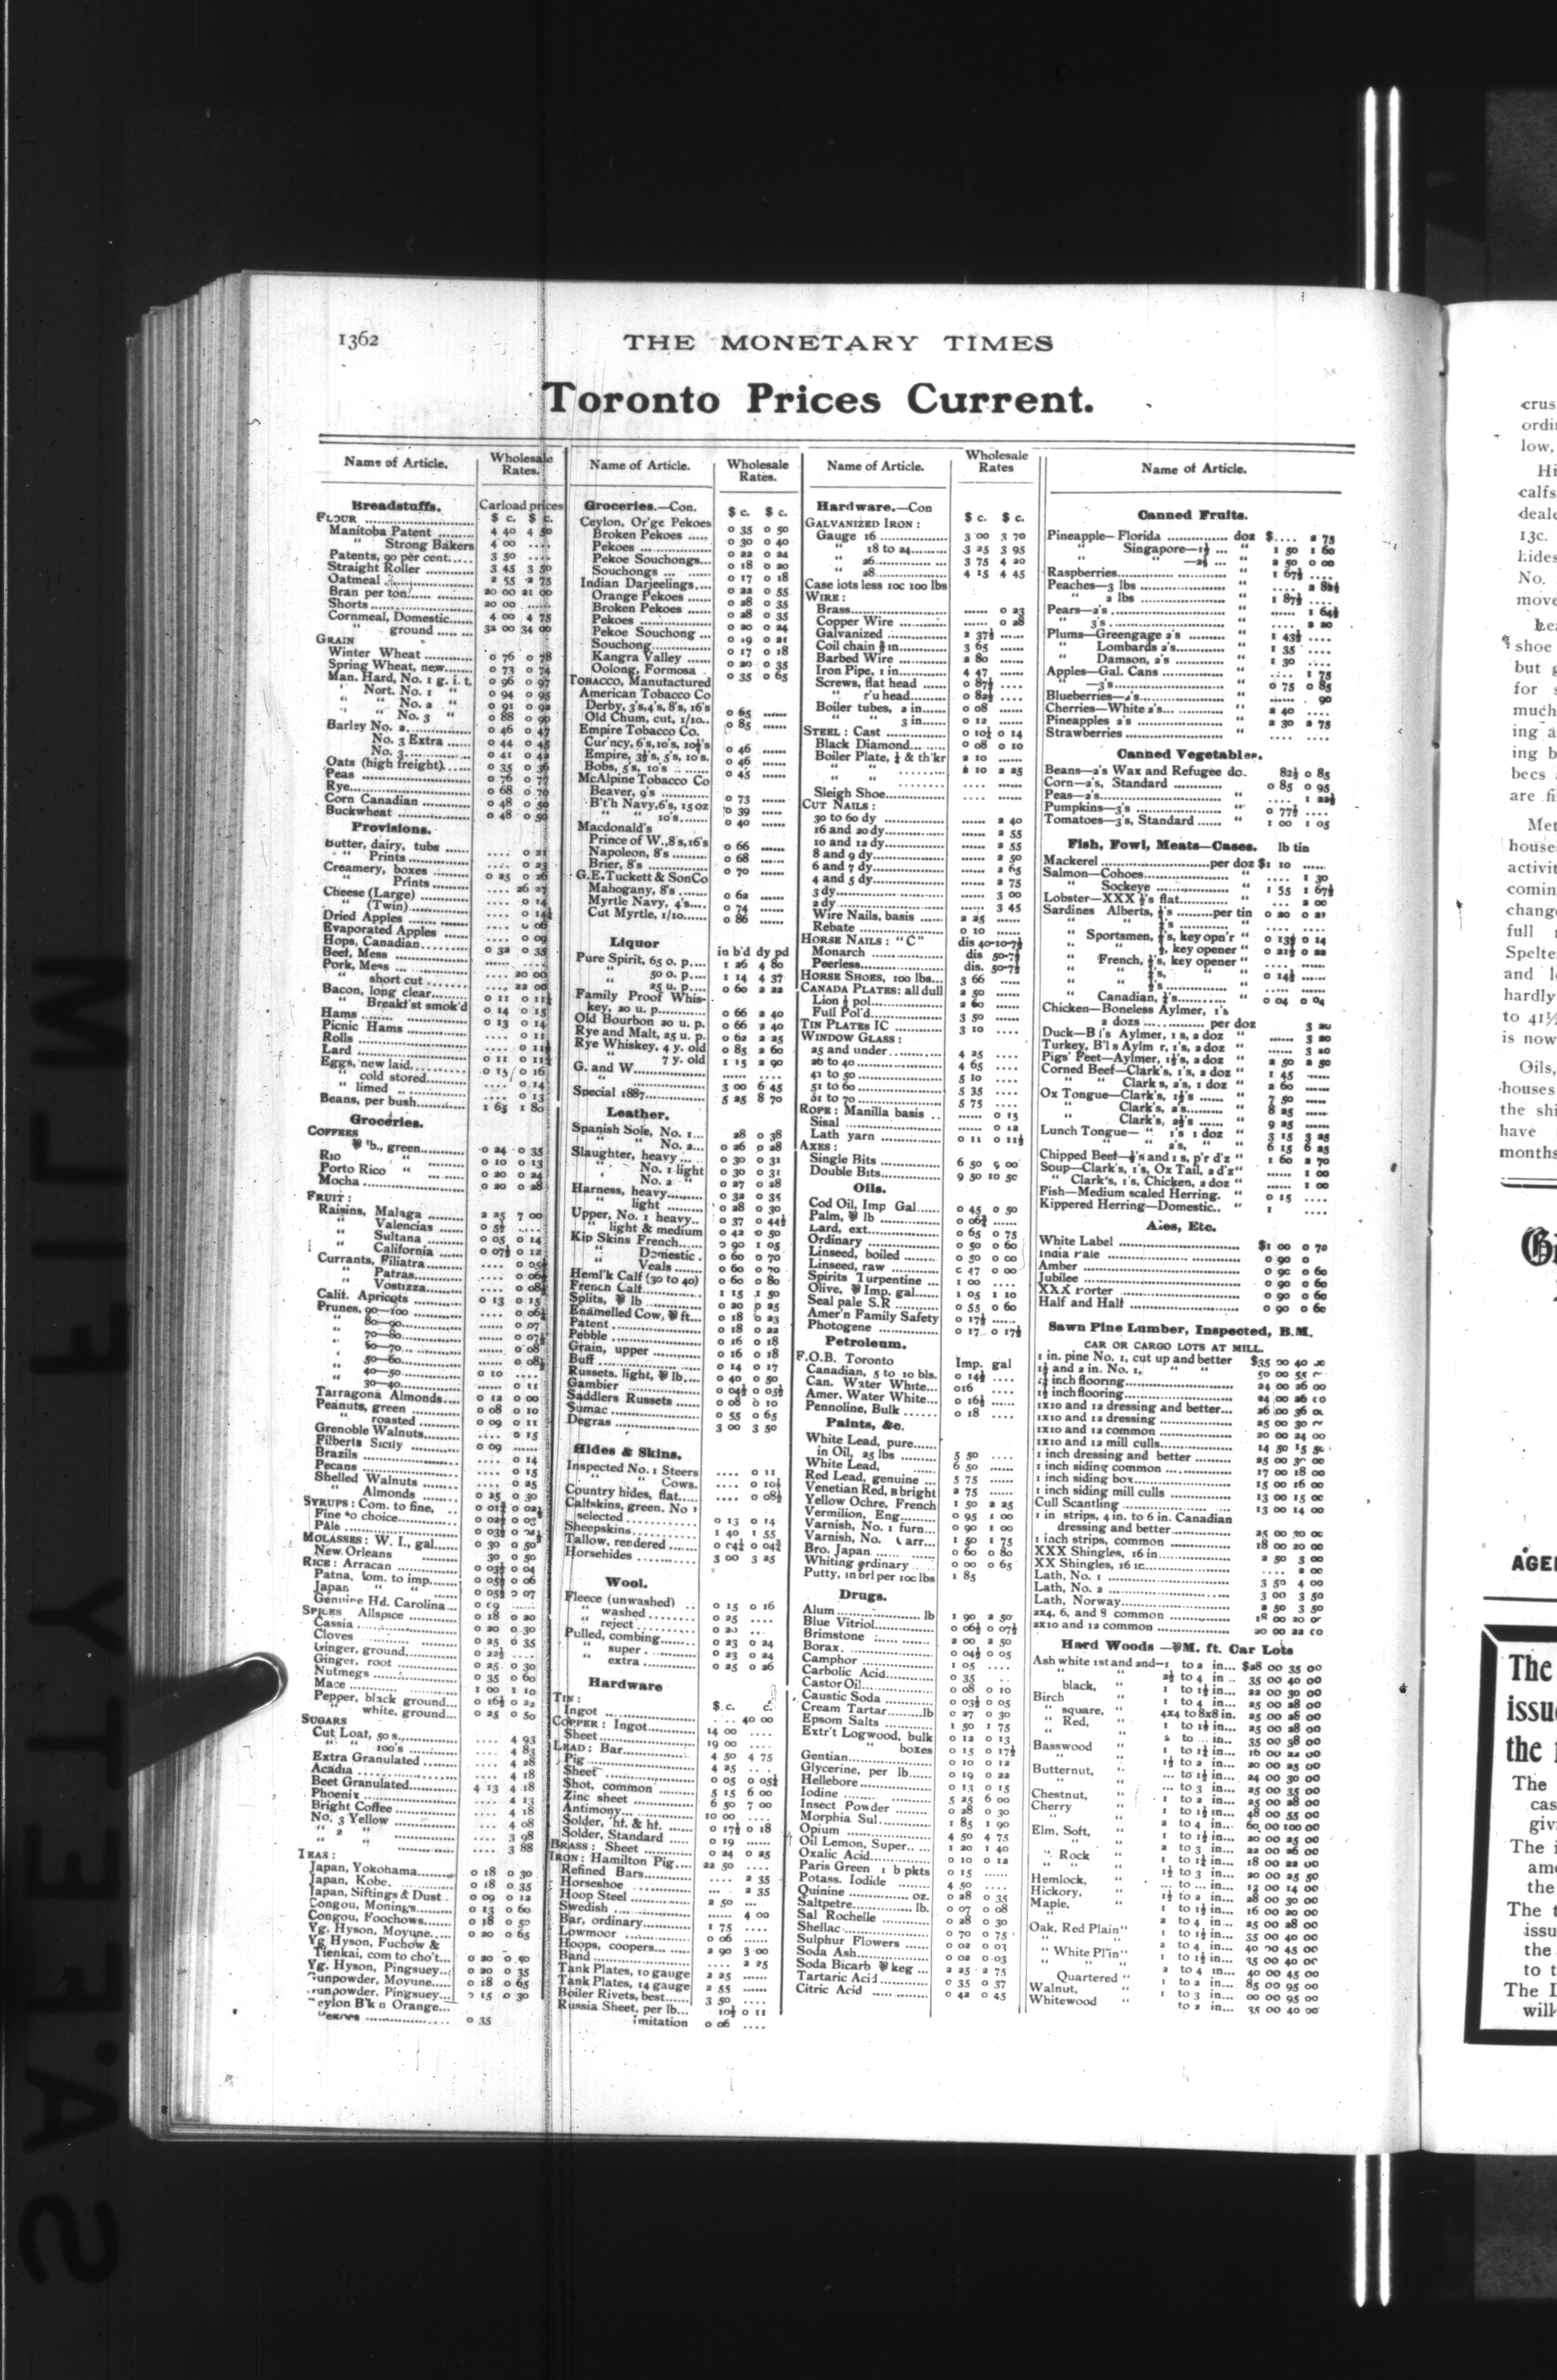 1362
THE MONETARY TIMES
Toronto Prices Current.
Name of Article.
Wholesale
Rates.
Breadstuffs.
Carload prices
FLOUR
$ c. $ c.
Manitoba Patent 4 40 4 50
" Strong Bakers 4 00
Patents, 90 per cent. 3 50
Straight Roller 3 45 3 50
Oatmeal 2 55 2 75
Bran per ton 20 00 21 00
Shorts 20 00
Cornmeal, Domestic 4 00 4 75
" ground 32 00 34 00
GRAIN
Winter Wheat 0 76 0 78
Spring Wheat, new 0 73 0 74
Man. Hard, No. 1 g. i. t. 0 96 0 97
" Nort. No. 1 " 0 94 0 95
" " No. 2 " 0 91 0 92
" " No. 3 " 0 88 0 90
Barley No. 2 0 46 0 47
No. 3 Extra 0 44 0 45
No. 3 0 41 0 42
Oats (high freight) 0 35 0 36
Peas 0 76 0 77
Rye 0 68 0 70
Corn Canadian 0 48 0 50
Buckwheat 0 48 0 50
Provisions.
Butter, dairy, tubs 0 21
" Prints 0 23
Creamery, boxes 0 25 0 26
" Prints 26 27
Cheese (Large) 0 14
" (Twin) 0 14¼
Dried Apples 0 06
Evaporated Apples 0 09
Hops, Canadian 0 32 0 35
Beef, Mess
Pork, Mess 20 00
" short cut 22 00
Bacon, long clear 0 11 0 11½
" Breakf'st smok'd 0 14 0 15
Hams 0 13 0 14
Picnic Hams 0 11
Rolls 0 11½
Lard 0 11 0 11½
Eggs, new laid 0 15 0 16
" cold stored 0 14
" limed 0 13
Beans, per bush 1 65 1 80
Groceries.
COFFEES
℔ lb., green 0 24 0 35
Rio " 0 10 0 13
Porto Rico " 0 20 0 24
Mocha 0 20 0 28
FRUIT :
Raisins, Malaga 2 25 7 00
" Valencias 0 5½
" Sultana 0 05 0 14
" California 0 07½ 0 12
Currants, Filiatra
" Patras
" Vostizza
Calif. Apricots 0 13 0 15
Prunes, 90—100
" 80—90 0 07
" 70—80 0 07½
" 60—70 0 08
" 50—60 0 08½
" 40—50 0 10
" 30—40 0 11
Tarragona Almonds 0 12 0 00
Peanuts, green 0 08 0 10
" roasted 0 09 0 11
Grenoble Walnuts 0 15
Filberts Sicily 0 09
Brazils 0 14
Pecans 0 15
Shelled Walnuts 0 25
" Almonds 0 25 0 30
SYRUPS : Com. to fine,
Fine to choice
Pale
MOLASSES : W. I., gal 0 30 0 50
New Orleans 30 0 50
RICE : Arracan 0 03½ 0 04
Patna, dom. to imp. 0 05½ 0 06
Japan " " 0 05½ 0 07
Genuine Hd. Carolina
SPICES Allspice 0 18 0 20
Cassia 0 20 0 30
Cloves 0 25 0 35
Ginger, ground 0 22½
Ginger, root 0 25 0 30
Nutmegs 0 35 0 60
Mace 1 00 1 10
Pepper, black ground 0 16½ 0 22
" white, ground 0 25 0 50
SUGARS
Cut Loaf, 50 s 4 93
" " 100's 4 83
Extra Granulated 4 28
Acadia 4 18
Beet Granulated 4 13 4 18
Phoenix 4 13
Bright Coffee 4 18
No. 3 Yellow 4 08
" 2 " 3 98
" " 3 88
TEAS :
Japan, Yokohama 0 18 0 30
Japan, Kobe 0 18 0 35
Japan, Siftings & Dust 0 09 0 12
Congou, Monings 0 13 0 60
Congou, Foochows 0 18 0 50
Yg. Hyson, Moyune 0 20 0 65
Yg Hyson, Fuchow &
Tienkai, com to cho't 0 20 0 50
Yg. Hyson, Pingsuey 0 20 0 35
Gunpowder, Moyune 0 18 0 65
Gunpowder, Pingsuey 0 15 0 30
Ceylon B'k n Orange
Pekoes 0 35
Name of Article.
Wholesale
Rates.
Groceries.—Con.
$ c. $ c.
Ceylon, Or'ge Pekoes 0 35 0 50
Broken Pekoes 0 30 0 40
Pekoes 0 22 0 24
Pekoe Souchongs 0 18 0 20
Souchongs 0 17 0 18
Indian Darjeelings 0 22 0 55
Orange Pekoes 0 28 0 35
Broken Pekoes 0 28 0 35
Pekoes 0 20 0 24
Pekoe Souchong 0 19 0 21
Souchong 0 17 0 18
Kangra Valley 0 20 0 35
Oolong, Formosa 0 35 0 65
TOBACCO, Manufactured
American Tobacco Co
Derby, 3's,4's, 8's, 16's 0 65
Old Chum, cut, 1/10 0 85
Empire Tobacco Co.
Cur'ncy, 6's,10's, 10½'s 0 46
Empire, 3½'s, 5's, 10's. 0 46
Bobs, 5's, 10's 0 45
McAlpine Tobacco Co
Beaver, 9's 0 73
B't'h Navy,6's, 15 oz 0 39
" " 10's 0 40
Macdonald's
Prince of W.,8's,16's 0 66
Napoleon, 8's 0 68
Brier, 8's 0 70
G.E.Tuckett & Son Co
Mahogany, 8's 0 62
Myrtle Navy, 4's 0 74
Cut Myrtle, 1/10 0 86
Liquor
in b'd dy pd
Pure Spirit, 65 o. p. 1 26 4 80
" 50 o. p. 1 14 4 37
" 25 u. p. 0 60 2 22
Family Proof Whis-
key, 20 u. p. 0 66 2 40
Old Bourbon 20 u. p. 0 66 2 40
Rye and Malt, 25 u. p. 0 62 2 25
Rye Whiskey, 4 y. old 0 85 2 60
" 7 y. old 1 15 2 90
G. and W.
" 3 00 6 45
Special 1887 5 25 8 70
Leather.
Spanish Sole, No. 1 28 0 38
" " No. 2 0 26 0 28
Slaughter, heavy 0 30 0 31
" No. 1 light 0 30 0 31
" No. 2 " 0 27 0 28
Harness, heavy 0 32 0 35
" light 0 28 0 30
Upper, No. 1 heavy 0 37 0 44½
" light & medium 0 42 0 50
Kip Skins French 0 90 1 05
" Domestic 0 60 0 70
" Veals 0 60 0 70
Heml'k Calf (30 to 40) 0 60 0 80
French Calf 1 15 1 50
Splits, ℔ lb 0 20 0 25
Enamelled Cow, ℔ ft 0 18 0 23
Patent 0 18 0 22
Pebble 0 16 0 18
Grain, upper 0 16 0 18
Buff 0 14 0 17
Russets, light, ℔ lb 0 40 0 50
Gambier
Saddlers Russets 0 08 0 10
Sumac 0 55 0 65
Degras 3 00 3 50
Hides & Skins.
Inspected No. 1 Steers 0 11
" " Cows. 0 10½
Country hides, flat 0 08½
Calfskins, green, No 1
selected 0 13 0 14
Sheepskins 1 40 1 55
Tallow, rendered
Horsehides 3 00 3 25
Wool.
Fleece (unwashed) 0 15 0 16
" washed 0 25
" reject
Pulled, combing 0 23 0 24
" super 0 23 0 24
" extra 0 25 0 26
Hardware
$ c. c.
TIN :
Ingot 40 00
COPPER : Ingot 14 00
Sheet 19 00
LEAD : Bar 4 50 4 75
Pig 4 25
Sheet 0 05 0 05½
Shot, common 5 15 6 00
Zinc sheet 6 50 7 00
Antimony 10 00
Solder, hf. & hf. 0 17½ 0 18
Solder, Standard 0 19
BRASS : Sheet 0 24 0 25
IRON : Hamilton Pig 22 50
Refined Bars 2 35
Horseshoe 2 35
Hoop Steel 2 50
Swedish 4 00
Bar, ordinary 1 75
Lowmoor 0 06
Hoops, coopers 2 90 3 00
Band 2 25
Tank Plates, 10 gauge 2 25
Tank Plates, 14 gauge 2 55
Boiler Rivets, best 3 50
Russia Sheet, per lb 10½ 0 11
imitation 0 06
Name of Article.
Wholesale
Rates
Hardware.—Con
$ c. $ c.
GALVANIZED IRON :
Gauge 16 3 00 3 70
" 18 to 24 3 25 3 95
" 26 3 75 4 20
" 28 4 15 4 45
Case lots less 10c 100 lbs
WIRE :
Brass 0 23
Copper Wire 0 28
Galvanized 2 37½
Coil chain ⅜ in 3 65
Barbed Wire 2 80
Iron Pipe, 1 in 4 47
Screws, flat head 0 87½
" r'u head 0 82½
Boiler tubes, 2 in 0 08
" " 3 in 0 12
STEEL : Cast 0 10½ 0 14
Black Diamond 0 08 0 10
Boiler Plate, ¼ & th'kr 2 10
" " 2 10 2 25
" "
Sleigh Shoe
CUT NAILS :
30 to 60 dy 2 40
16 and 20 dy 2 55
10 and 12 dy 2 55
8 and 9 dy 2 50
6 and 7 dy 2 65
4 and 5 dy 2 75
3 dy 3 00
2 dy 3 45
Wire Nails, basis 2 25
Rebate 0 10
HORSE NAILS : "C" dis 40-10-7½
Monarch dis 50-7½
Peerless dis. 50-7½
HORSE SHOES, 100 lbs 3 66
CANADA PLATES : all dull 2 50
Lion ½ pol 2 60
Full Pol'd 3 50
TIN PLATES IC 3 10
WINDOW GLASS :
25 and under 4 25
26 to 40 4 65
41 to 50 5 10
51 to 60 5 35
61 to 70 5 75
ROPE : Manilla basis 0 15
Sisal 0 12
Lath yarn 0 11 0 11½
AXES :
Single Bits 6 50 9 00
Double Bits 9 50 10 50
Oils.
Cod Oil, Imp Gal 0 45 0 50
Palm, ℔ lb
Lard, ext 0 65 0 75
Ordinary 0 50 0 60
Linseed, boiled 0 50 0 00
Linseed, raw 0 47 0 00
Spirits Turpentine 1 00
Olive, ℔ Imp. gal 1 05 1 10
Seal pale S.R 0 55 0 60
Amer'n Family Safety 0 17½
Photogene 0 17 0 17½
Petroleum.
F.O.B. Toronto Imp. gal
Canadian, 5 to 10 bls. 0 14½
Can. Water White 016
Amer. Water White 0 16½
Pennoline, Bulk 0 18
Paints, &c.
White Lead, pure
in Oil, 25 lbs 5 50
White Lead, 6 50
Red Lead, genuine 5 75
Venetian Red, B bright 2 75
Yellow Ochre, French 1 50 2 25
Vermilion, Eng 0 95 1 00
Varnish, No. 1 furn 0 90 1 00
Varnish, No. 1 arr 1 50 1 75
Bro. Japan 0 60 0 80
Whiting ordinary 0 00 0 65
Putty, in brl per 100 lbs 1 85
Drugs.
Alum lb 1 90 2 50
Blue Vitriol 0 06½ 0 07½
Brimstone 2 00 2 50
Borax 0 04½ 0 05
Camphor 1 05
Carbolic Acid 0 35
Castor Oil 0 08 0 10
Caustic Soda 0 03½ 0 05
Cream Tartar lb 0 27 0 30
Epsom Salts 1 50 1 75
Extr't Logwood, bulk 0 12 0 13
" boxes 0 15 0 17½
Gentian 0 10 0 12
Glycerine, per lb 0 19 0 22
Hellebore 0 13 0 15
Iodine 5 25 6 00
Insect Powder 0 28 0 30
Morphia Sul 1 85 1 90
Opium 4 50 4 75
Oil Lemon, Super 1 20 1 40
Oxalic Acid 0 10 0 12
Paris Green 1 b pkts 0 15
Potass. Iodide 4 50
Quinine oz. 0 28 0 35
Saltpetre lb. 0 07 0 08
Sal Rochelle 0 28 0 30
Shellac 0 70 0 75
Sulphur Flowers 0 02 0 03
Soda Ash 0 02 0 03
Soda Bicarb ℔ keg 2 25 2 75
Tartaric Acid 0 35 0 37
Citric Acid 0 42 0 45
Name of Article.
Canned Fruits.
Pineapple—Florida doz $ 2 75
" Singapore—1½ " 1 50 1 60
" " —2½ " 2 50 0 00
Raspberries " 1 67½
Peaches—3 lbs " 2 82½
" 2 lbs " 1 87½
Pears—2's " 1 64½
" 3's " 2 20
Plums—Greengage 2's " 1 43½
" Lombards 2's " 1 35
" Damson, 2's " 1 30
Apples—Gal. Cans " 1 75
" —3's " 0 75 0 85
Blueberries—2's " 90
Cherries—White 2's " 2 40
Pineapples 2's " 2 30 2 75
Strawberries "
Canned Vegetables.
Beans—2's Wax and Refugee do. 82½ 0 85
Corn—2's, Standard 0 85 0 95
Peas—2's " 1 22½
Pumpkins—3's " 0 77½
Tomatoes—3's, Standard " 1 00 1 05
Fish, Fowl, Meats—Cases. lb tin
Mackerel per doz $1 10
Salmon—Cohoes " 1 30
" Sockeye " 1 55 1 67½
Lobster—XXX ½'s flat " 2 00
Sardines Alberts, ¼'s per tin 0 20 0 21
" " ½'s "
" Sportsmen, ¼'s, key opn'r " 0 13½ 0 14
" " ½'s, key opener " 0 21½ 0 22
" French, ¼'s, key opener "
" " ½'s, " " 0 14½
" " ½'s "
" Canadian, ¼'s " 0 04 0 04
Chicken—Boneless Aylmer, 1's
2 dozs per doz 3 20
Duck—B l's Aylmer, 1 s, 2 doz " 3 20
Turkey, B'l s Aylm r, 1's, 2 doz " 3 20
Pigs' Feet—Aylmer, 1½'s, 2 doz " 2 50 2 50
Corned Beef—Clark's, 1's, 2 doz " 1 45
" " Clark s, 2's, 1 doz " 2 60
Ox Tongue—Clark's, 1½'s " 7 50
" Clark's, 2's " 8 25
" Clark's, 2½'s " 9 25
Lunch Tongue— " 1's 1 doz " 3 15 3 25
" " 2's, " 6 15 6 25
Chipped Beef—½'s and 1 s, p'r d'z " 1 60 2 70
Soup—Clark's, 1's, Ox Tail, 2 d'z " 1 00
" Clark's, 1's, Chicken, 2 doz " 1 00
Fish—Medium scaled Herring. " 0 15
Kippered Herring—Domestic " 1
Ales, Etc.
White Label $1 00 0 70
India Pale 0 90 0
Amber 0 90 0 60
Jubilee 0 90 0 60
XXX Porter 0 90 0 60
Half and Half 0 90 0 60
Sawn Pine Lumber, Inspected, B.M.
CAR OR CARGO LOTS AT MILL.
1 in. pine No. 1, cut up and better $35 00 40 00
1½ and 2 in. No. 1, " " 50 00 55
1½ inch flooring 24 00 26 00
1½ inch flooring 24 00 26 00
1x10 and 12 dressing and better 26 00 36 00
1x10 and 12 dressing 25 00 30
1x10 and 12 common 20 00 24 00
1x10 and 12 mill culls 14 50 15 50
1 inch dressing and better 25 00 30 00
1 inch siding common 17 00 18 00
1 inch siding box 15 00 16 00
1 inch siding mill culls 13 00 15 00
Cull Scantling 13 00 14 00
1 in strips, 4 in. to 6 in. Canadian
dressing and better 25 00 30 00
1 inch strips, common 18 00 20 00
XXX Shingles, 16 in 2 50 3 00
XX Shingles, 16 in 2 00
Lath, No. 1 3 50 4 00
Lath, No. 2 3 00 3 50
Lath, Norway 2 50 3 50
2x4, 6, and 8 common 18 00 20 00
2x10 and 12 common 20 00 22 00
Hard Woods —℔M. ft. Car Lots
Ash white 1st and 2nd—1 to 2 in $28 00 35 00
" " 2½ to 4 in 35 00 40 00
" black, " 1 to 1½ in 22 00 30 00
Birch " 1 to 4 in 25 00 28 00
" square, " 4x4 to 8x8 in. 25 00 28 00
" Red, " 1 to 1½ in 25 00 28 00
" " 2 to in 35 00 38 00
Basswood " 1 to 1½ in 16 00 22 00
" " 1½ to 2 in 20 00 25 00
Butternut, " to 1½ in 24 00 30 00
" " to 3 in 25 00 35 00
Chestnut, " 1 to 2 in 25 00 28 00
Cherry " 1 to 1½ in 48 00 55 00
" " 2 to 4 in 60 00 100 00
Elm, Soft, " 1 to 1½ in 20 00 25 00
" " 2 to 3 in 22 00 26 00
" Rock " 1 to 1½ in 18 00 22 00
" " 1½ to 3 in 20 00 25 50
Hemlock, " to in 12 00 14 00
Hickory, " 1½ to 2 in 28 00 30 00
Maple, " 1 to 1½ in 16 00 20 00
" " 2 to 4 in 25 00 28 00
Oak, Red Plain " 1 to 1½ in 35 00 40 00
" " " 2 to 4 in 40 00 45 00
" White Pl'in " 1 to 1½ in 35 00 40 00
" " " 2 to 4 in 40 00 45 00
Quartered " 1 to 2 in 85 00 95 00
Walnut, " 1 to 3 in 00 00 95 00
Whitewood " to 2 in 35 00 40 00
crus
ordi
low,
Hi
calfs
deale
13c.
hides
No.
move
Lea
shoe
but g
for s
much
ing a
ing b
becs a
are fi
Met
house
activit
comin
chang
full r
Spelte
and l
hardly
to 41½
is now
Oils,
houses
the shi
have
months
AGE
The
issu
the
The
cas
givi
The i
am
the
The t
issu
the
to t
The I
will
SAFETY FILM